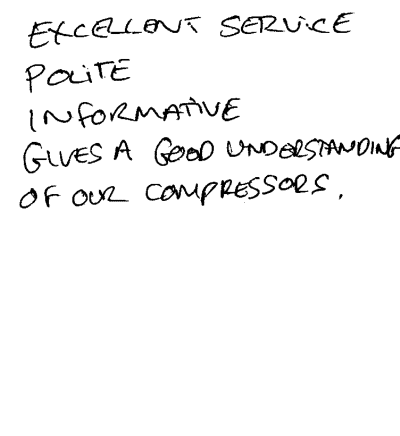 EXCELLENT SERVICE
POLITE
INFORMATIVE
GIVES A GOOD UNDERSTANDING
OF OUR COMPRESSORS.